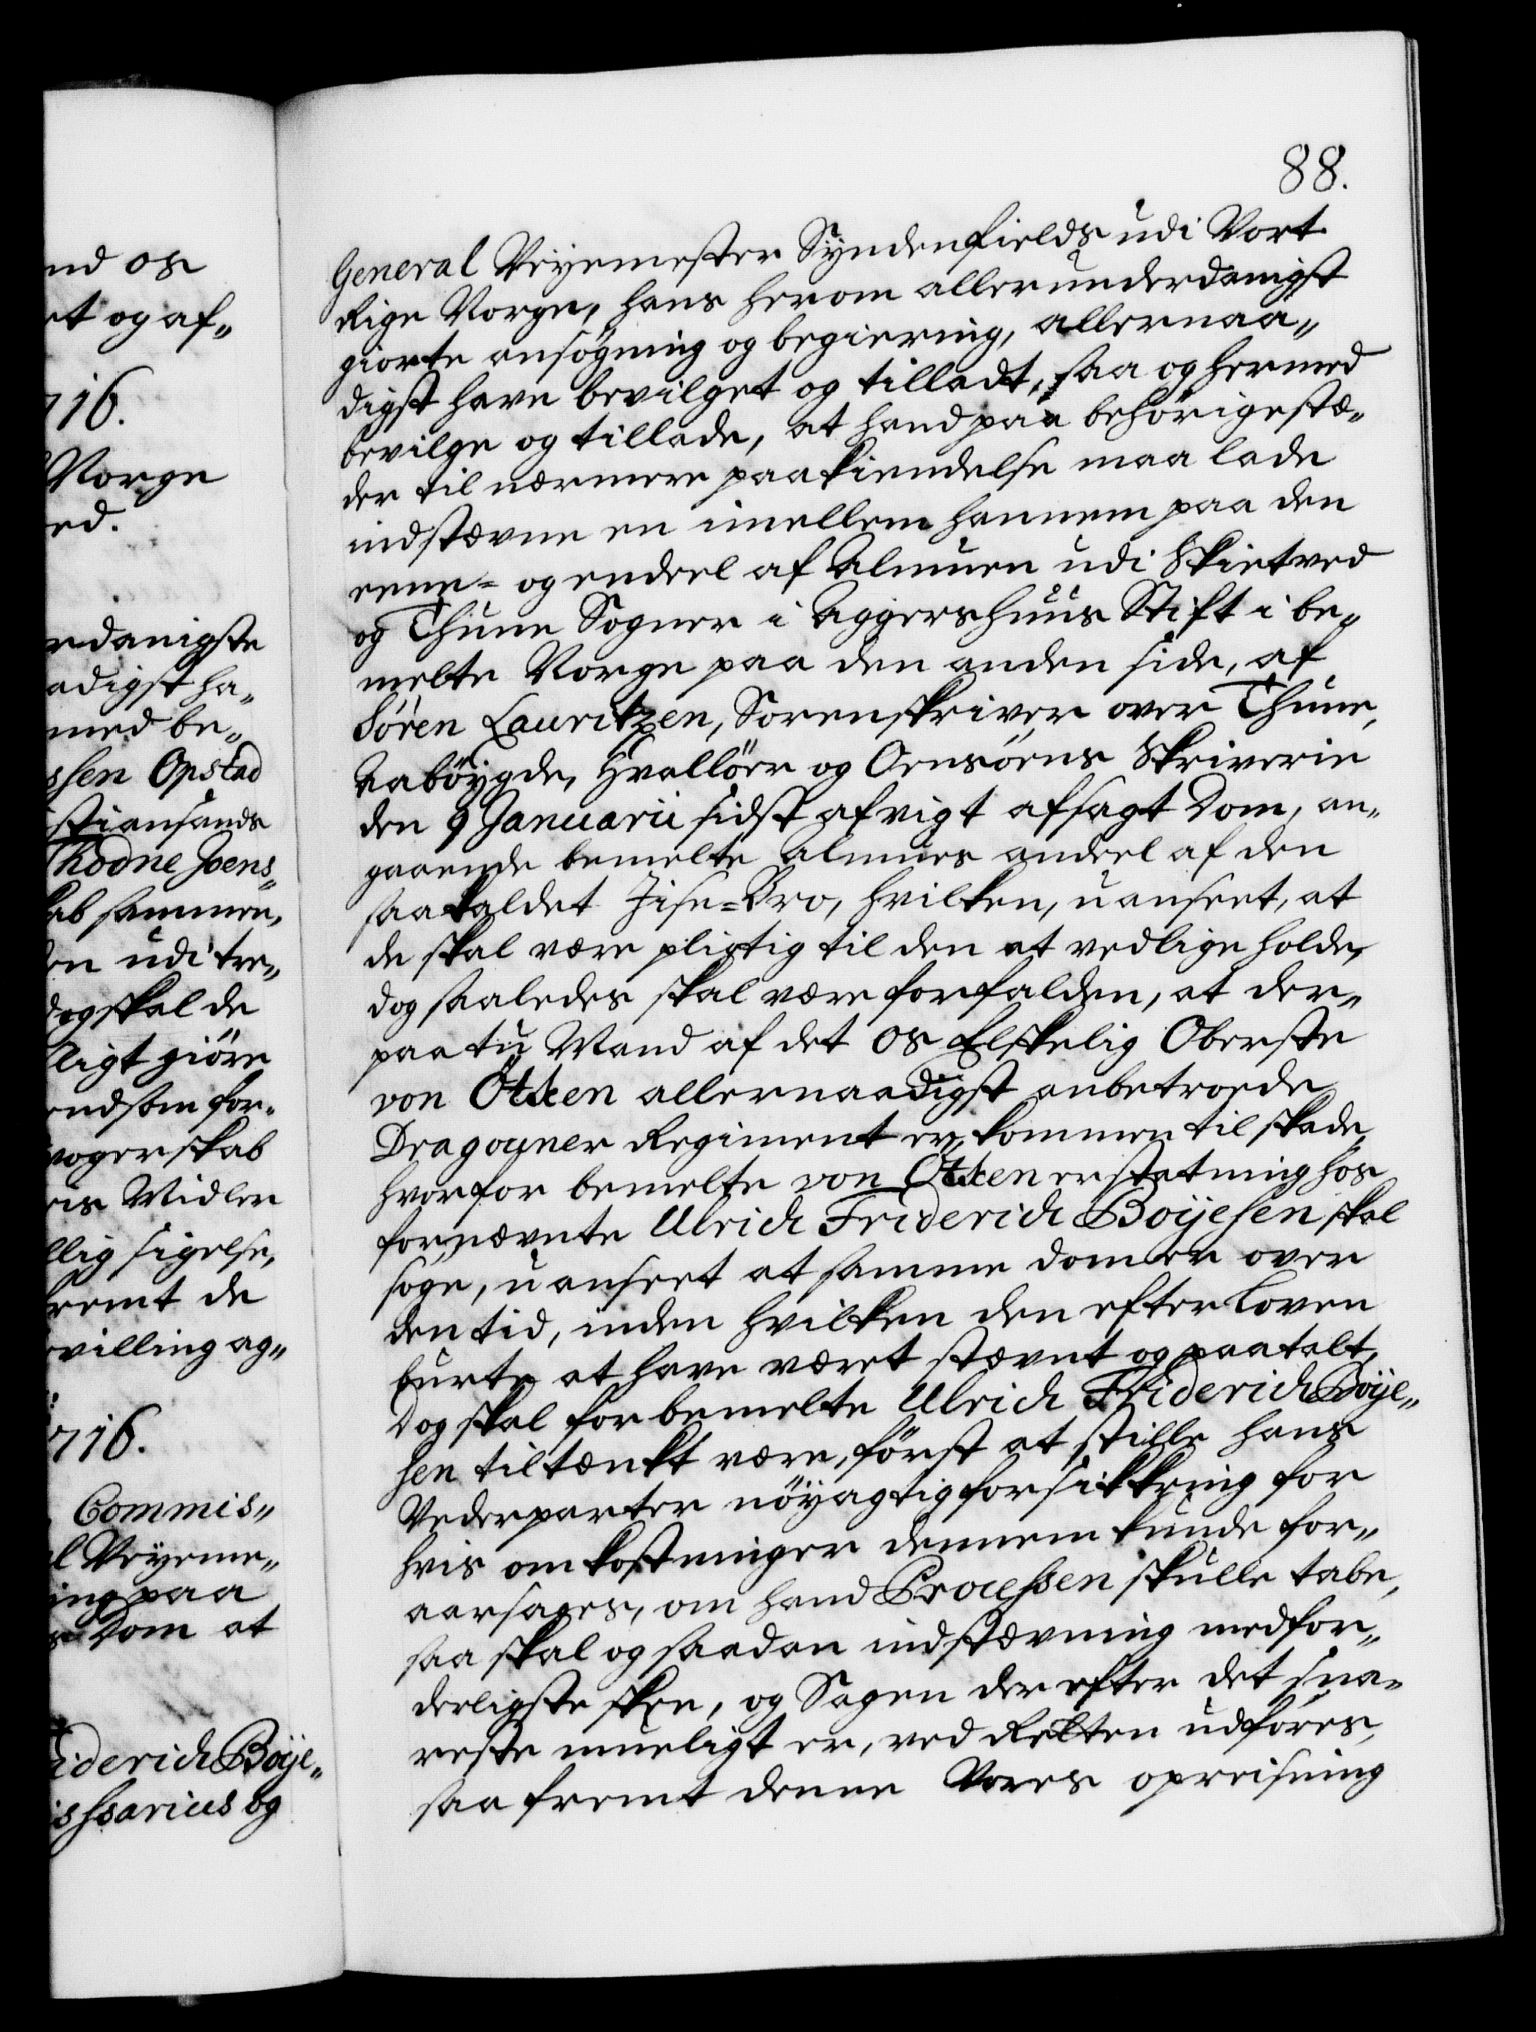 88.
nd os
et og af„
716.
Norge
ed.
rdanigste
adigst ha„
med be„
shen Opstad
stiansands
Thodne Joens„
kab sammen„
en udi tre„
dog skal de
ligt giöre
endsom for„
vogerskab
ris Midler
llig sigelse,
fremt de
villing ag„
716.
Commis„
l Veyeme„
ing paa
s Dom at
riderich Böije„
ishsarius og
General Veyemester Syndenfields udi Vort
Rige Norge, hans herom allerunderdanigst
giorte ansögning og begiering, allernaa„
digst have bevilget og tilladt, saa og hermed
bevilge og tillade, at hand paa behörige stæ„
der til nærmere paakiendelse maa lade
indstævne en imellem hannem paa den
eene= og endeel af Almuen udi Skietved
og Thune Sogner i Aggershuus Stift i be„
melte Norge paa den anden side, af
Sören Lauritzen, Sorenskriver over Thune,
Aabÿgde, Hvallöer og Onsöens Skriverie
den 9 Januarii sidst afvigt afsagt Dom, an„
gaaende bemelte Almues andeel af den
saakaldet Jise=Bro, hvilken, uanseet, at
de skal være pligtig til den at vedlige holde,
dog saaledes skal være forfalden, at der„
paa tu Mand af det os Elskelig Oberste
von Ötken allernaadigst anbetroede
Dragouner Regiment er kommen til skade,
hvorfor bemelte von Ötken erstatning hos
fornævnte Ulrich Friderich Böijesen skal
söge, uanseet at samme dom er over
den tid, inden hvilken den efter Loven
burte at have været stævnt og paatalt,
Dog skal forbemelte Ulrich Friderich Böije„
sen tiltænkt være, först at stille hans
Vederparter nöyagtig forsikkring for
hvis omkostninger dennem kunde for„
aarsages, om hand Processen skulle tabe,
saa skal og saadan indstævning med for„
derligste skee, og Sagen der efter det sna„
reste mueligt er, ved Retten udföres,
saa fremt denne Vores opreisning